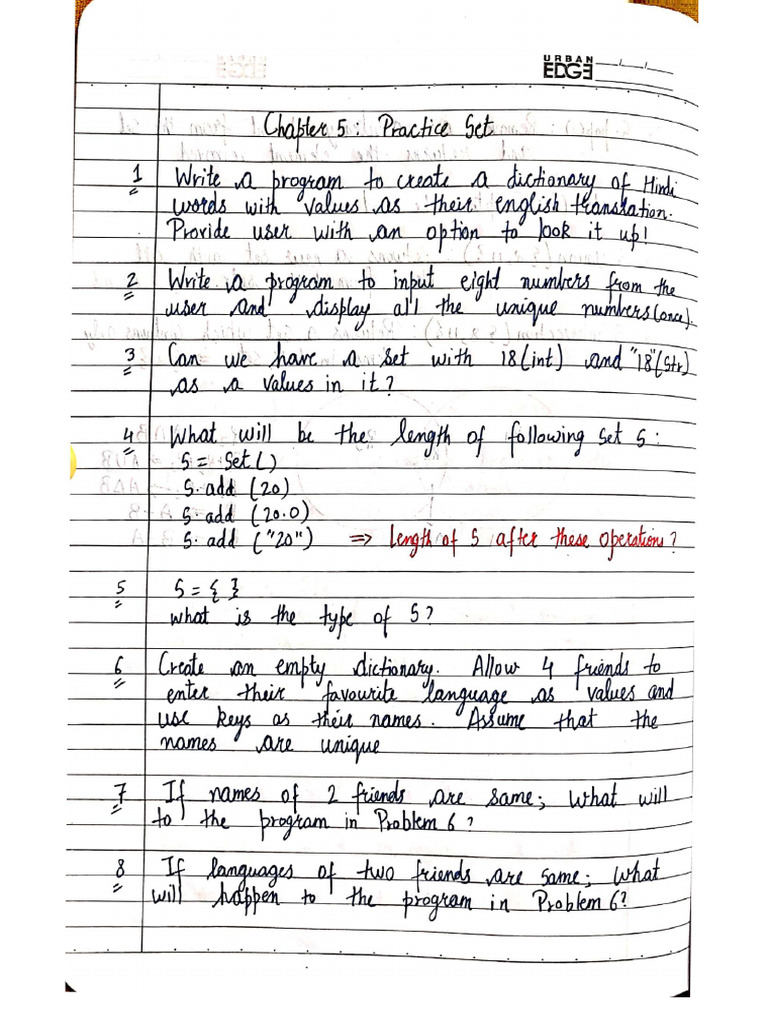 URBAN
EDGE
Chapter 5: Practice Set
1 Write a program to create a dictionary of Hindi
words with values as their english translation.
Provide user with an option to look it up!
2 Write a program to input eight numbers from the
user and display all the unique numbers (once).
3 Can we have a set with 18(int) and "18"(str)
as a values in it?
4 What will be the length of following set S:
S = Set()
S.add (20)
S.add (20.0)
S.add ("20") => length of S after these operations?
5 S = { }
what is the type of S?
6 Create an empty dictionary. Allow 4 friends to
enter their favourite language as values and
use keys as their names. Assume that the
names are unique
7 If names of 2 friends are same; what will
to the program in Problem 6?
8 If languages of two friends are same; what
will happen to the program in Problem 6?